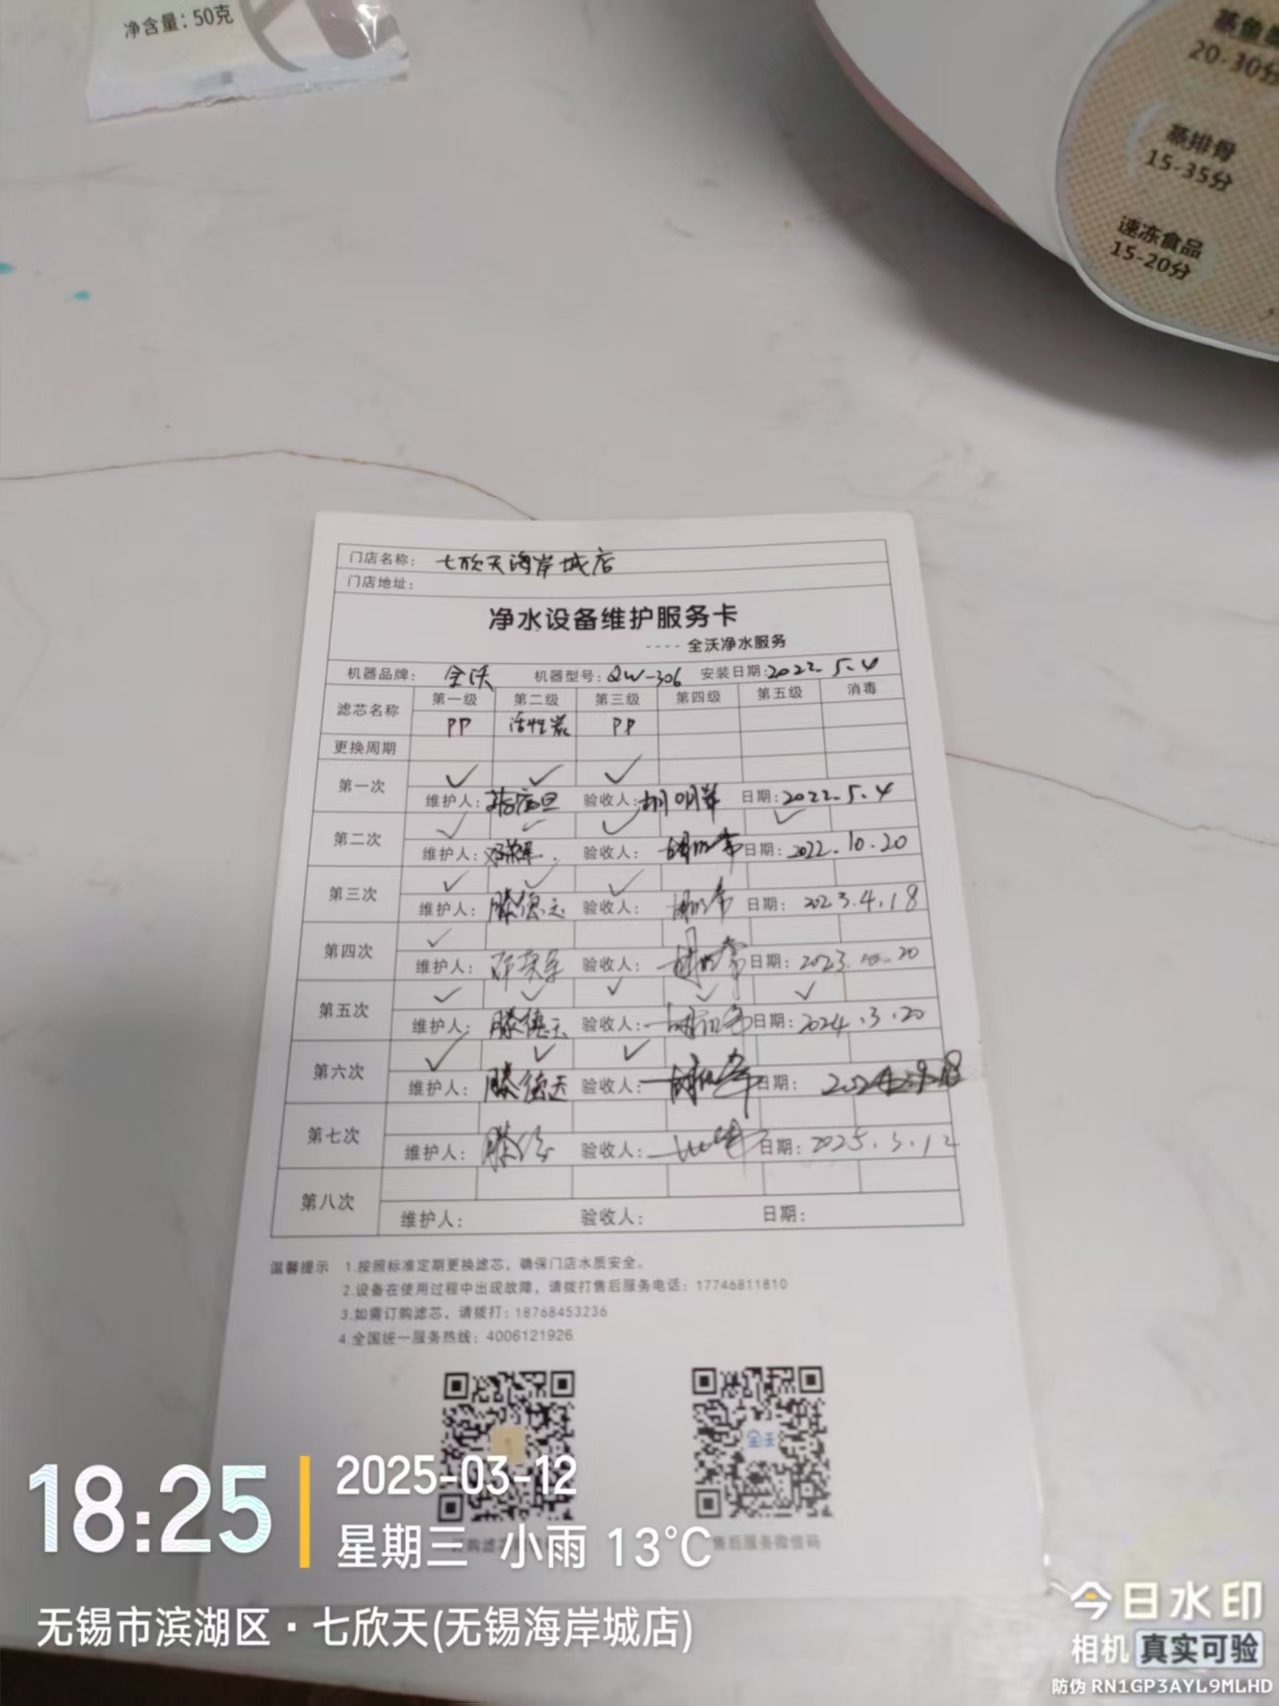 净含量：50克
20-30分
蒸排骨
15-35分
速冻食品
15-20分
门店名称： 七欣天海岸城店
门店地址：
净水设备维护服务卡
---- 全沃净水服务
机器品牌： 全沃 机器型号：QW-306 安装日期：2022.5.4
滤芯名称 第一级 第二级 第三级 第四级 第五级 消毒
PP 活性炭 PP
更换周期
第一次 ✓ ✓ ✓
维护人： 验收人： 日期：2022.5.4
第二次 ✓ ✓ ✓ ✓
维护人： 验收人： 日期：2022.10.20
第三次 ✓ ✓ ✓
维护人：滕德云 验收人： 日期：2023.4.18
第四次 ✓
维护人： 验收人： 日期：2023.10.20
第五次 ✓ ✓ ✓ ✓ ✓
维护人：滕德云 验收人： 日期：2024.3.20
第六次 ✓ ✓ ✓
维护人：滕德云 验收人： 日期：
第七次
维护人： 验收人： 日期：2025.3.12
第八次
维护人： 验收人： 日期：
温馨提示 1.按照标准定期更换滤芯，确保门店水质安全。
2.设备在使用过程中出现故障，请拨打售后服务电话：17746811810
3.如需订购滤芯，请拨打：18768453236
4.全国统一服务热线：4006121926
全沃
售后服务微信码
18:25
2025-03-12
星期三 小雨 13℃
无锡市滨湖区·七欣天(无锡海岸城店)
今日水印
相机 真实可验
防伪 RN1GP3AYL9MLHD